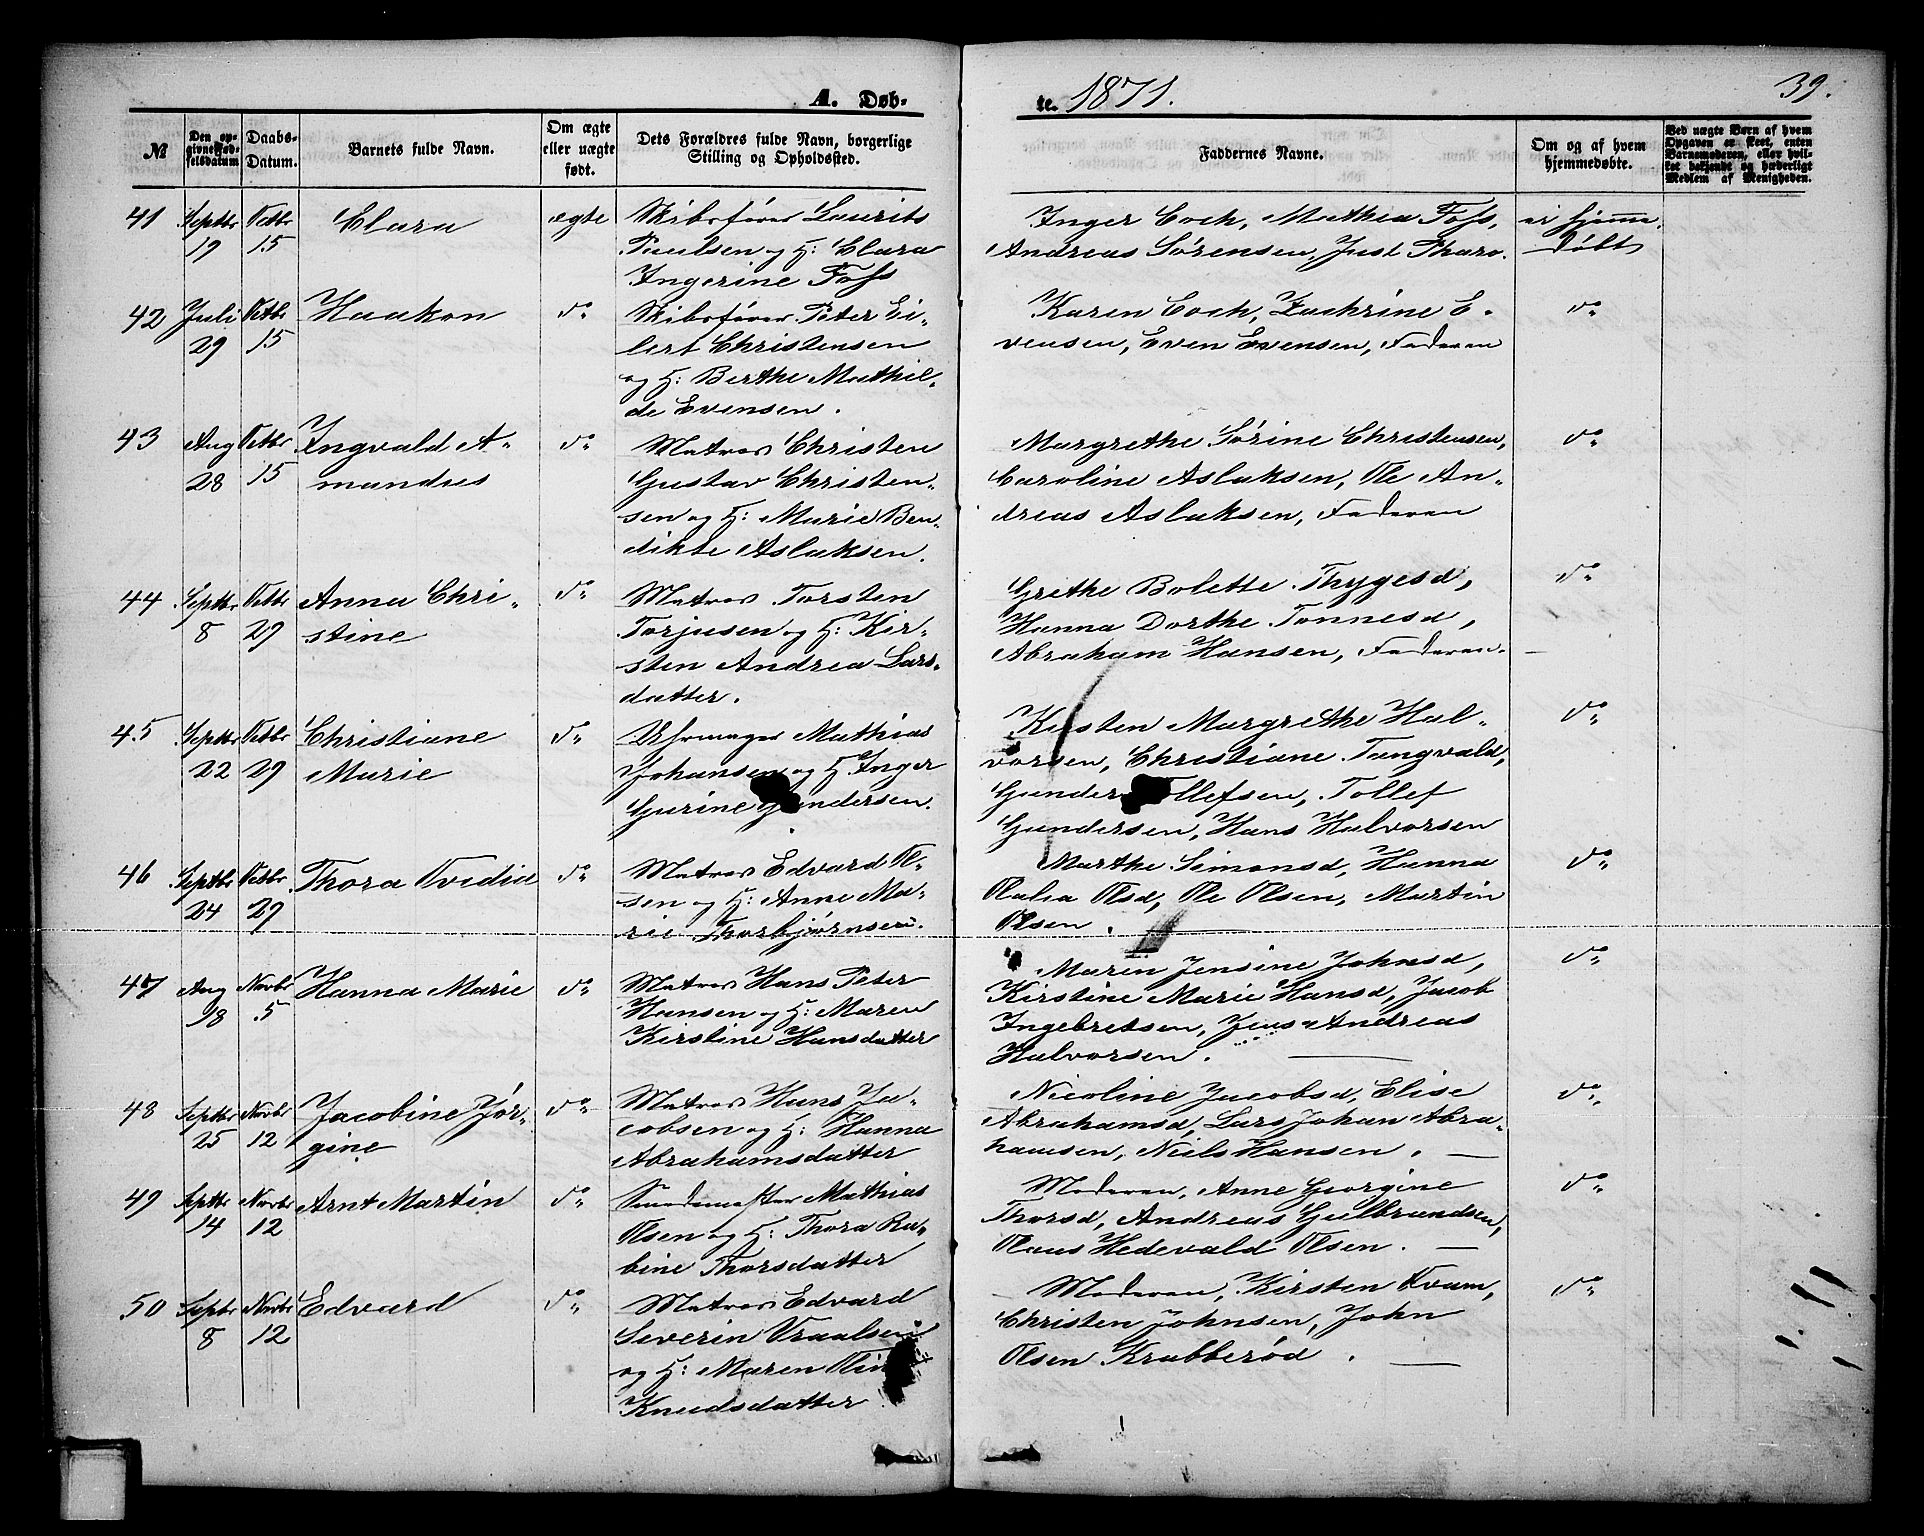 A. Døb-
te. 1871.
39.
№
Den op-
givne Fød-
selsdatum
Daabs-
Datum.
Barnets fulde Navn.
Om ægte
eller uægte
født.
Dets Forældres fulde Navn, borgerlige
Stilling og Opholdssted.
Faddernes Navne.
Om og af hvem
hjemmedøbte.
Ved uægte Børn af hvem
Opgaven er skeet, enten
Barnemoderen, eller hvil-
ket bekjendt og hæderligt
Medlem af Menigheden.
41 Septbr 19 Octbr 15 Clara ægte
Skibsfører Laurits
Paulsen og H: Clara
Ingerine Foss
Inger Coch, Mathea Foss,
Andreas Sørensen, Just Tharo.
ei hjemme.
døbt
42 Juli 29 Octbr 15 Haakon do
Skibsfører Peter Ei-
lert Christensen
og H: Berthe Mathil-
de Evensen.
Karen Coch, Zachrine E-
vensen, Even Evensen, Faderen
do
43 Aug 28 Octbr 15 Ingvald A-
mandus
do
Matros Christen
Gustav Christen-
sen og H: Marie Ben-
dikte Aslaksen.
Margrethe Sørine Christensen,
Caroline Aslaksen, Ole An-
dreas Aslaksen, Faderen
do
44 Septbr 8 Octbr 29 Anna Chri-
stine
do
Matros Torsten
Torjusen og H: Kir-
sten Andrea Lars-
datter.
Grethe Bolette Thygesd,
Hanna Dorthe Tønnesd,
Abraham Hansen, Faderen.
do
45 Septbr 22 Octbr 29 Christiane
Marie
do
Uhrmager Mathias
Johansen og H: Inger
Gurine Gundersen.
Kirsten Margrethe Hal-
vorsen, Christiane Tangvald,
Gunder Tollefsen, Tollef
Gundersen, Hans Halvorsen
do
46 Septbr 24 Octbr 29 Thora Ovidia do
Matros Edvard Ol-
sen og H: Anne Ma-
rie Thorbjørnsen.
Marthe Simonsd, Hanna
Olalia Olsd, Ole Olsen, Martin
Olsen.
do
47 Aug 18 Novbr 5 Hanna Marie do
Matros Hans Peter
Hansen og H: Maren
Kirstine Hansdatter
Maren Jensine Johnsd,
Kirstine Marie Hansd, Jacob
Ingebretsen, Jens Andreas
Halvorsen.
do
48 Septbr 25 Novbr 12 Jacobine Jør-
gine
do
Matros Hans Ja-
cobsen og H: Hanna
Abrahamsdatter
Nicoline Jacobsd, Elise
Abrahamsd, Lars Johan Abra-
hamsen, Niels Hansen.
do
49 Septbr 14 Novbr 12 Arnt Martin do
Smedemester Mathias
Olsen og H: Thora Ra-
bine Thorsdatter
Moderen, Anne Georgine
Thorsd, Andreas Gulbrandsen,
Olaus Hedevald Olsen.
do
50 Septbr 8 Novbr 12 Edvard do
Matros Edvard
Severin Vraalsen
og H: Maren
Knudsdatter
Moderen, Kirsten Kvam,
Christen Johnsen, John
Olsen Krabberød.
do